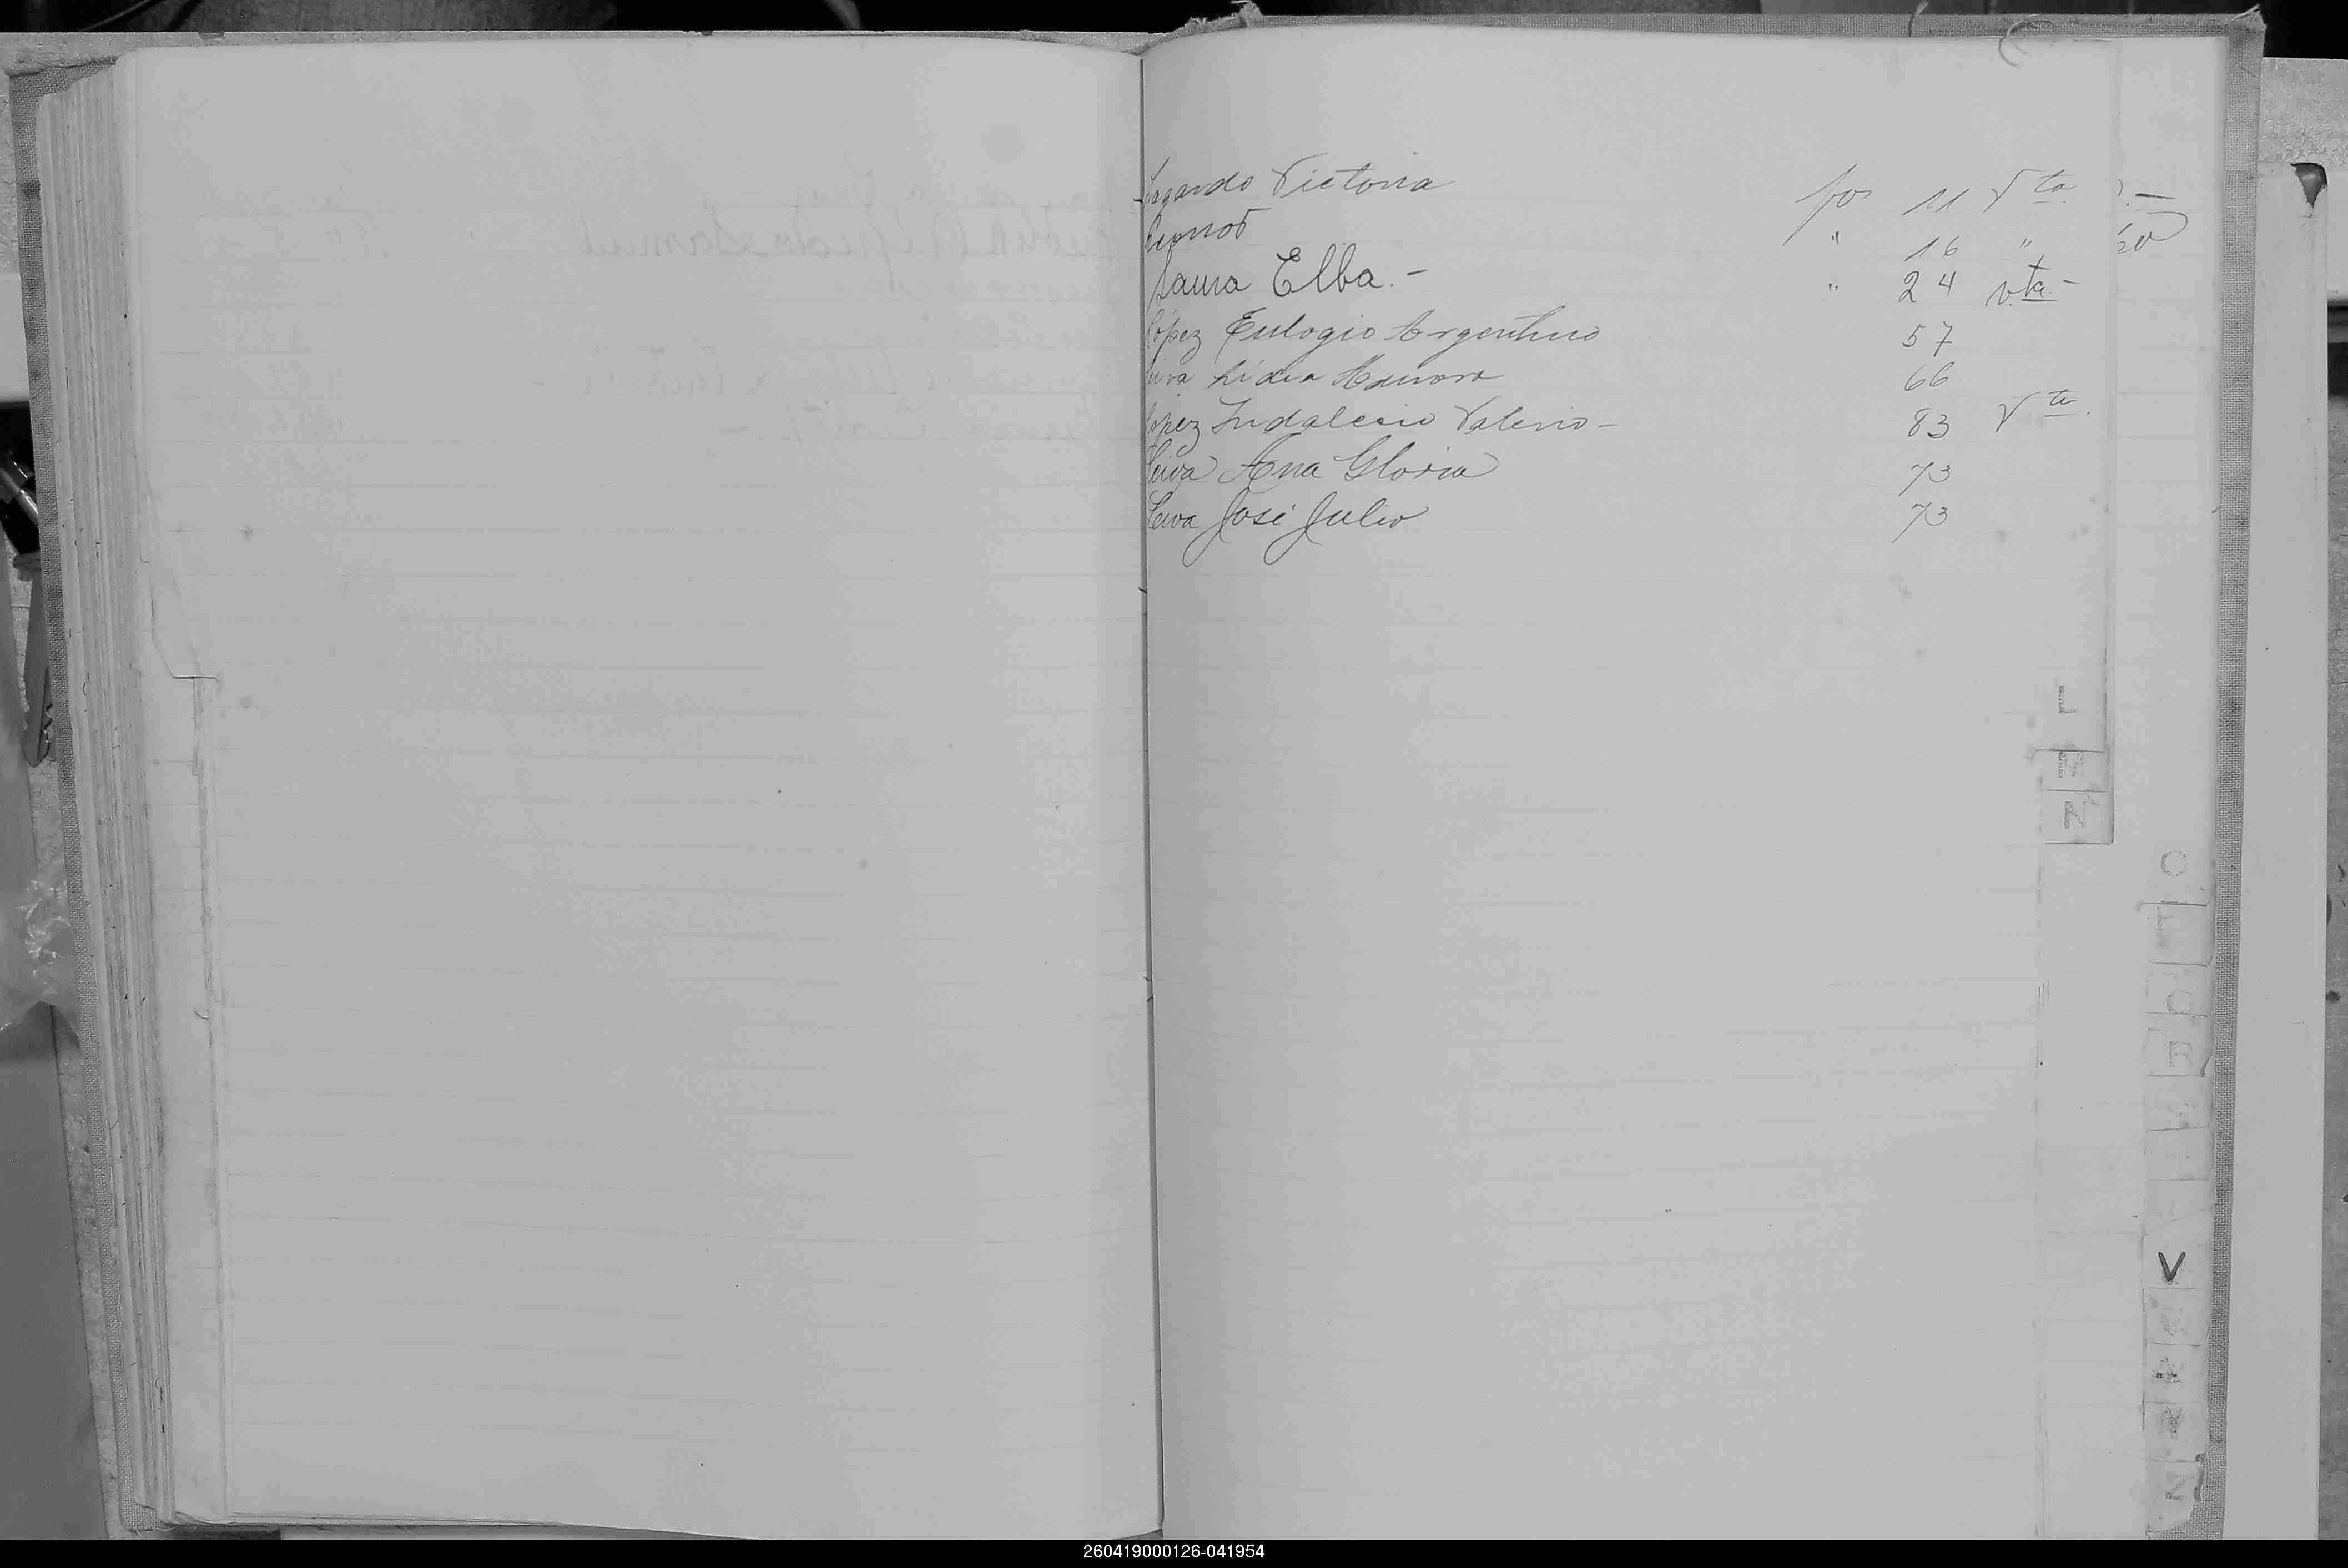 Lagardo Victoria fos 11 Vta.
" 16 "
Laura Elba.- " 24 vta.-
López Eulogio Argentino 57
Leiva Lidia Ramona 66
López Indalecio Valerio- 83 Vta.
Leiva Ana Gloria 73
Leiva José Julio 73
L
M
N
O
Q
R
V
Z
260419000126-041954